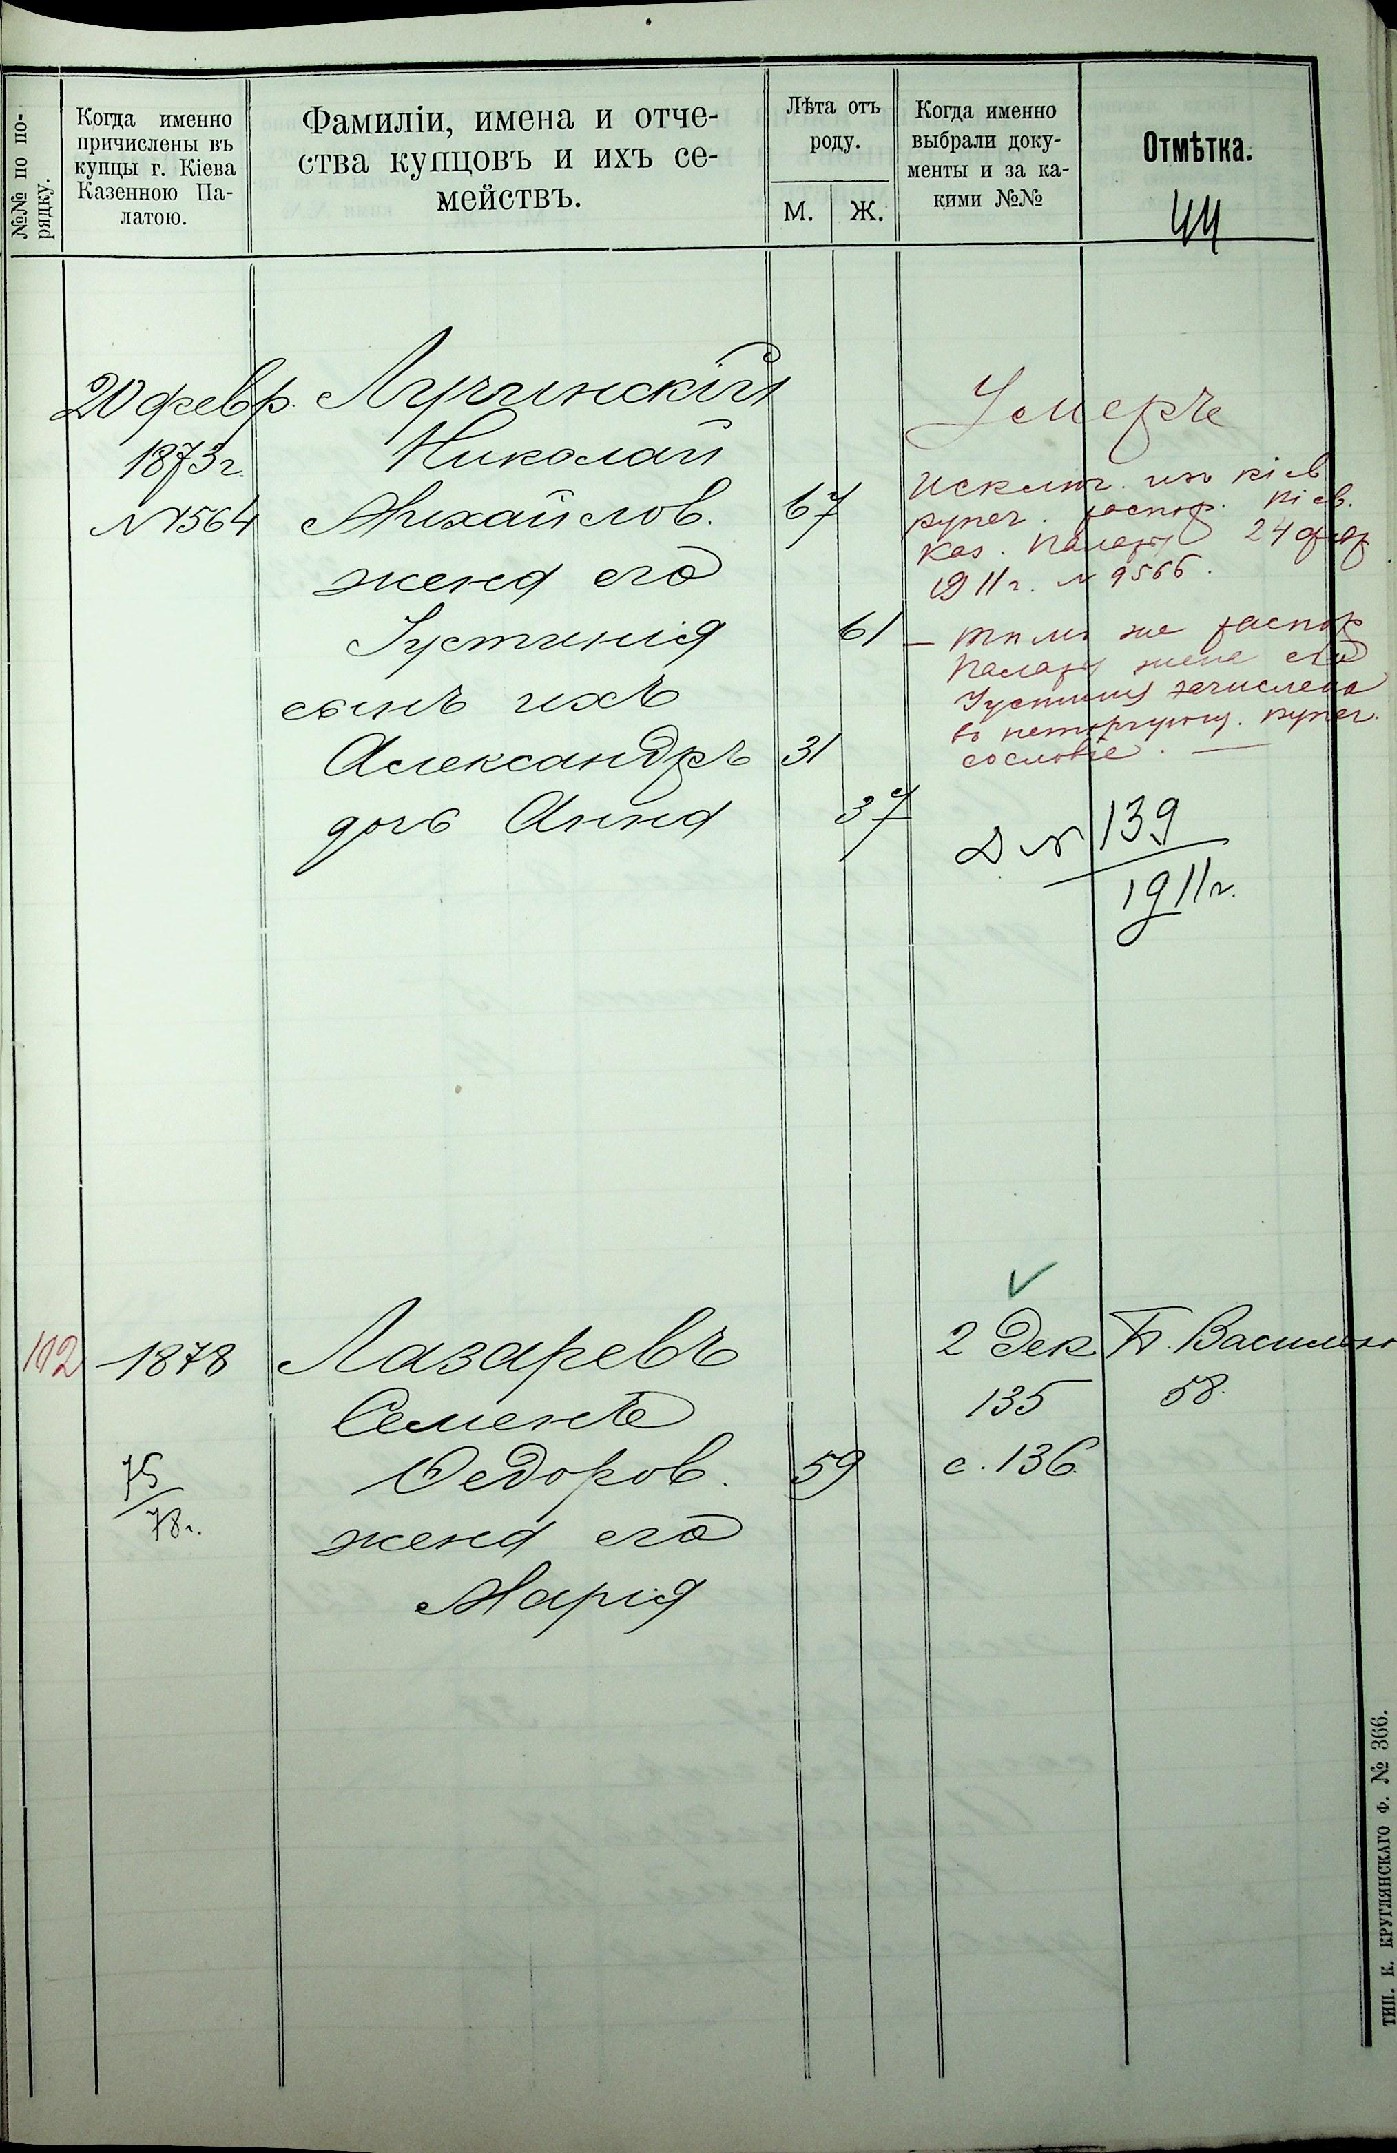 №№ по по-
рядку.
Когда именно
причислены въ
купцы г. Кіева
Казенною Па-
латою.
Фамиліи, имена и отче-
ства купцовъ и ихъ се-
мействъ.
Лѣта отъ
роду.
М. Ж.
Когда именно
выбрали доку-
менты и за ка-
кими №№
Отмѣтка.
44
20 февр.
1873 г.
№ 1564
Лучинскій
Николай
Михайлов. 67
жена его
Іустинія 61
сынъ ихъ
Александръ 31
дочь Анна 37
Умеръ
Исключ. изъ Кіев
купеч. распор. Кіев.
Каз. Палаты 24 фев
1911 г. № 9566.
— тѣмъ же распор
Палаты жена его
Іустинія зачислена
въ неторгующ. купеч.
сословіе. —
Д. № 139
1911 г.
112
1878
75
78 г.
Лазаревъ
Семенъ
Федоров. 59
жена его
Марія
2 Дек
135
с. 136
П. Василько
58.
ТИП. К. КРУГЛЯНСКАГО Ф. № 366.